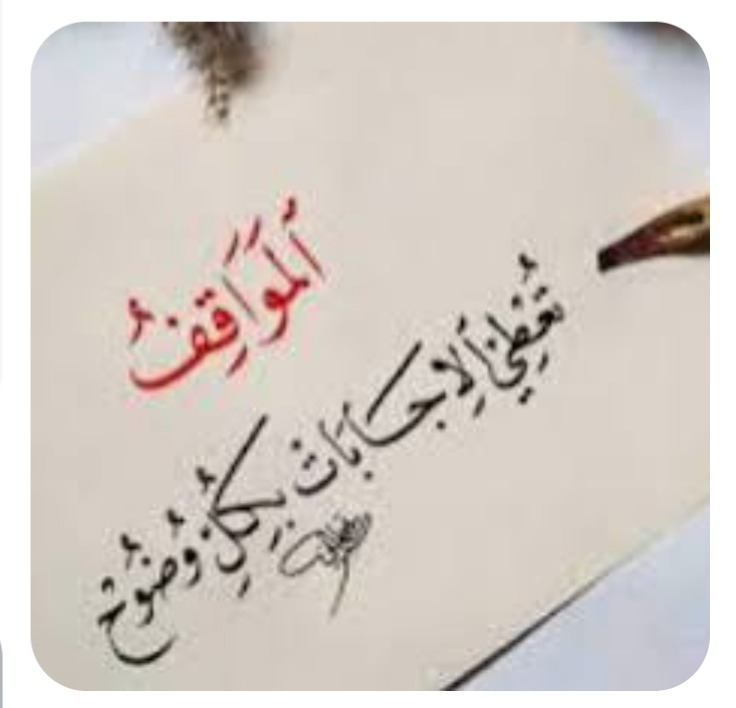 اَلمَوَاقِفُ
تُعْطِي اَلإِجَابَاتْ بِكُلِّ وُضُوحْ